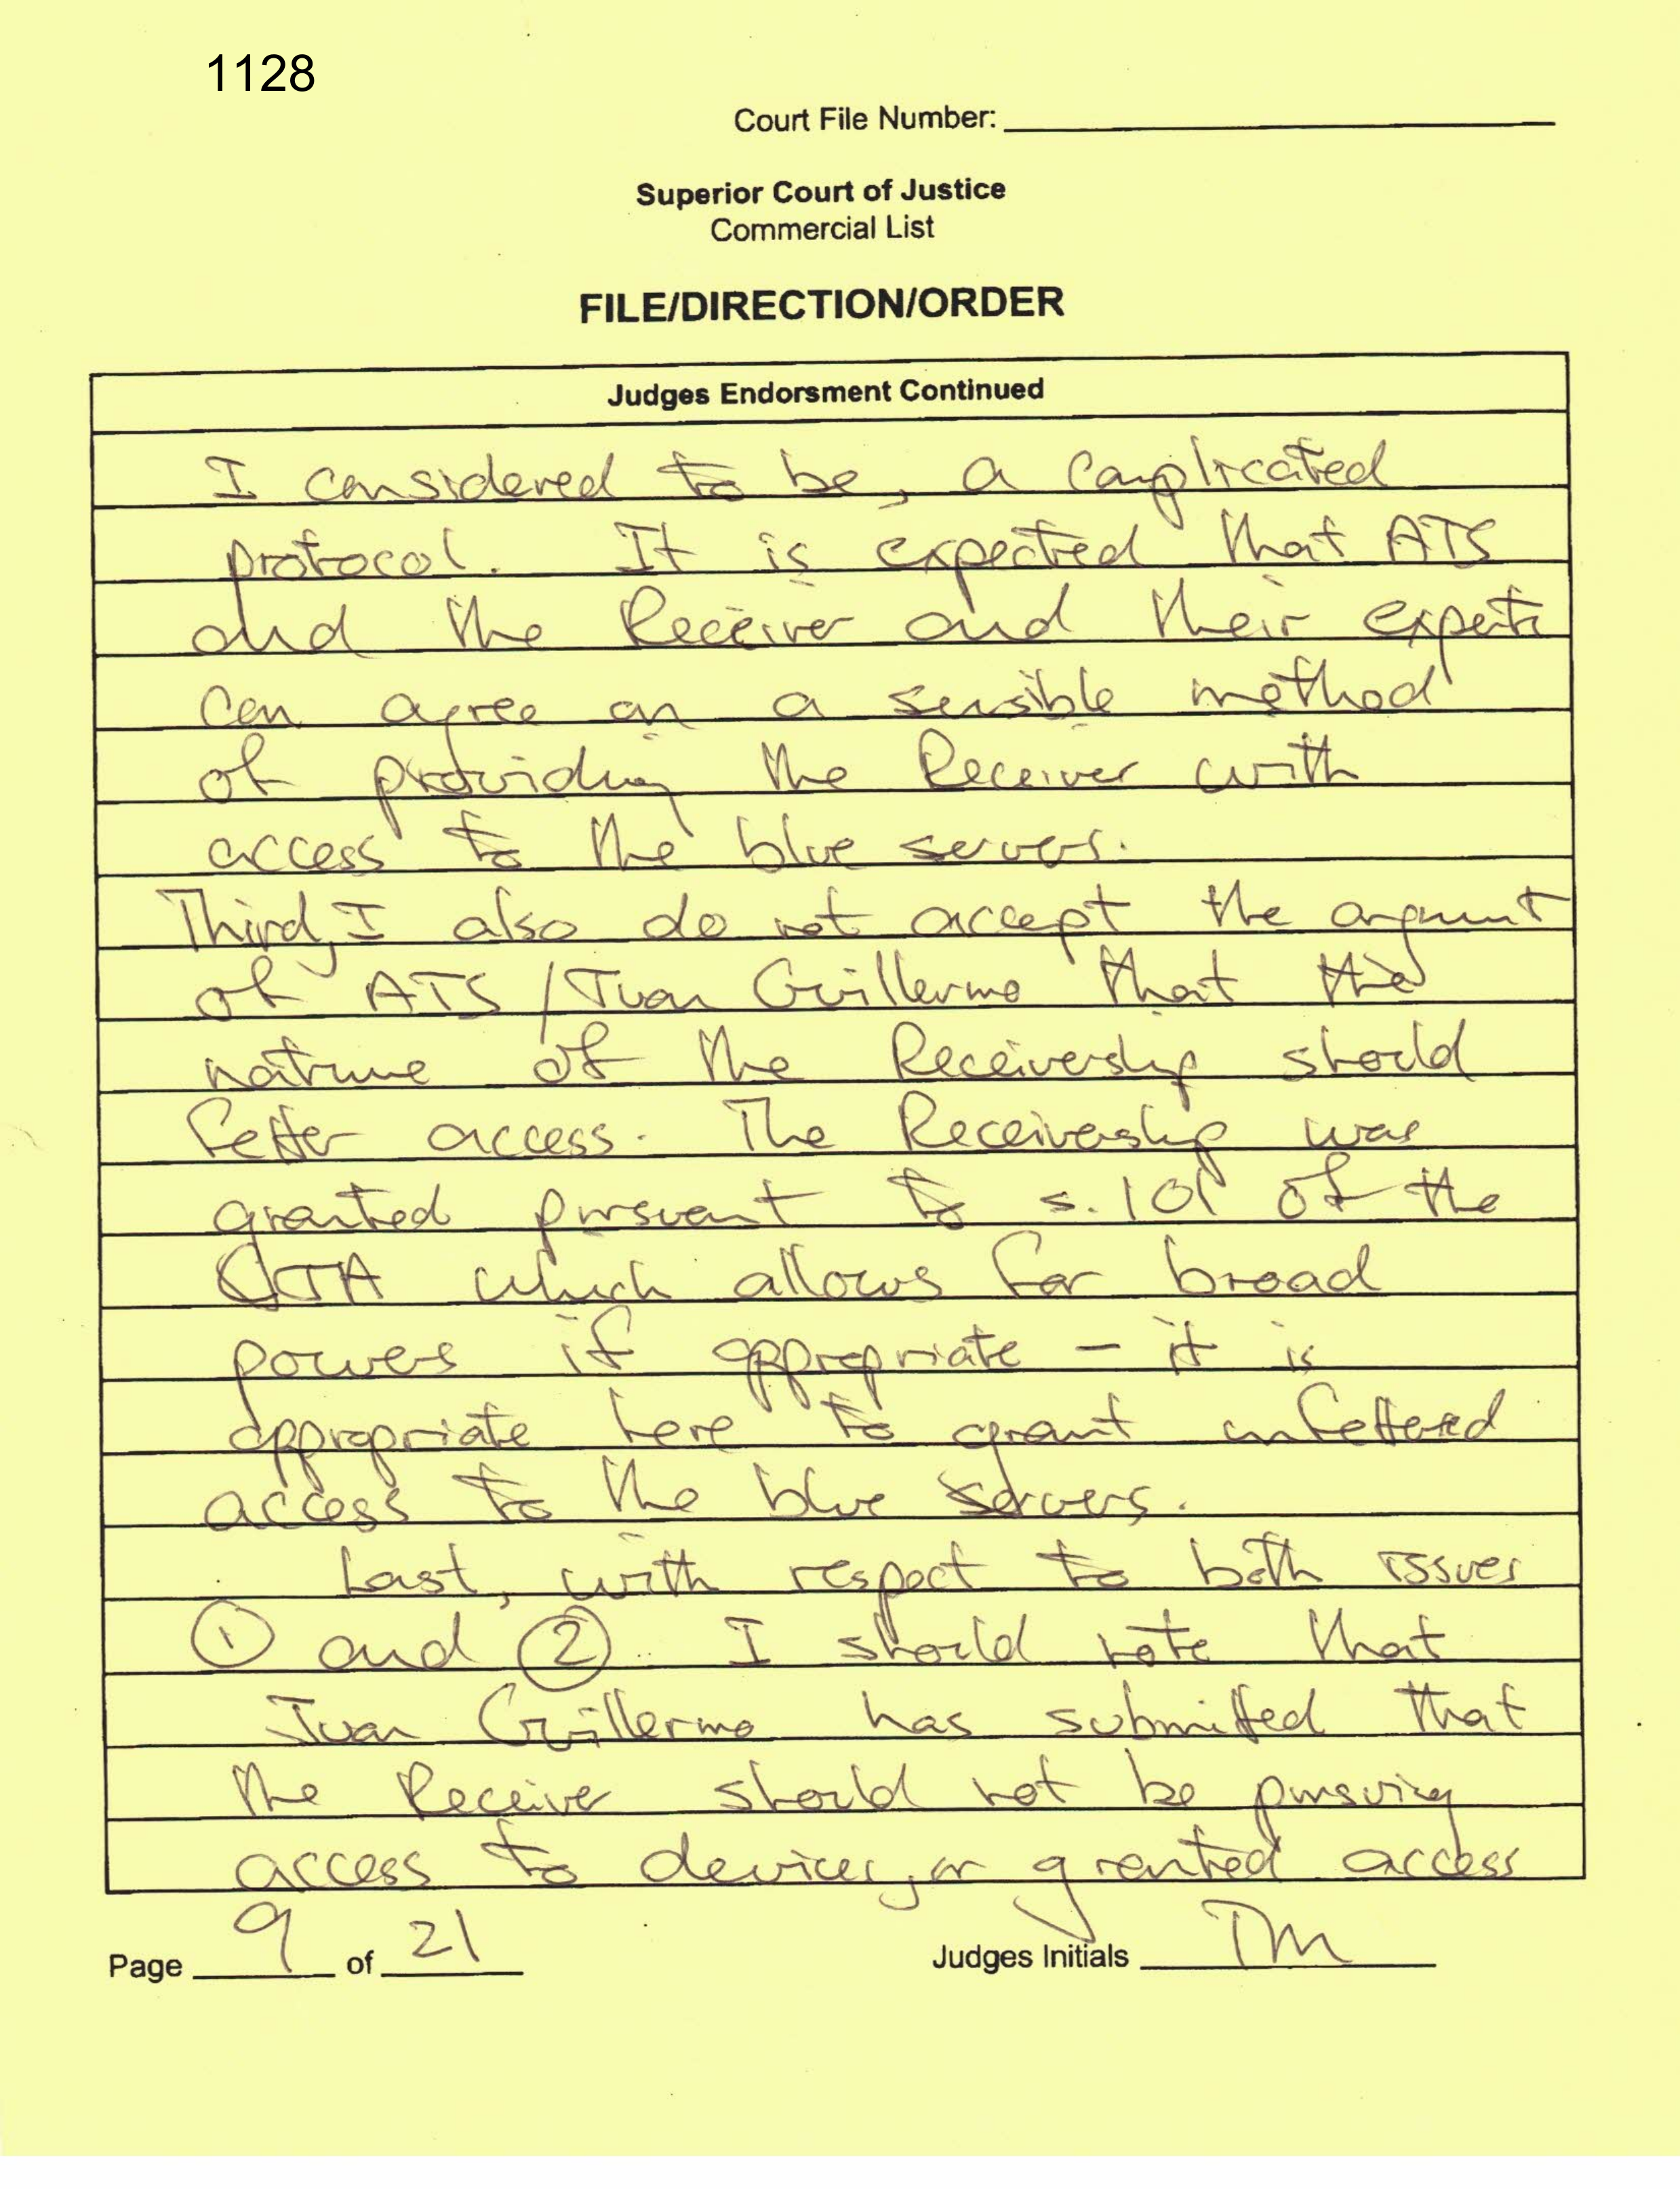 1128
Court File Number:
Superior Court of Justice
Commercial List
FILE/DIRECTION/ORDER
Judges Endorsment Continued
I considered to be, a complicated
protocol. It is expected that ATS
and the Receiver and their experts
can agree on a sensible method
of providing the Receiver with
access to the blue servers.
Third, I also do not accept the argument
of ATS / Juan Guillermo that the
nature of the Receivership should
fetter access. The Receivership was
granted pursuant to s. 101 of the
CJA which allows for broad
powers if appropriate - it is
appropriate here to grant unfettered
access to the blue servers.
Last, with respect to both issues
① and ②. I should note that
Juan Guillermo has submitted that
the Receiver should not be pursuing
access to devices, or granted access
Page 9 of 21
Judges Initials TM